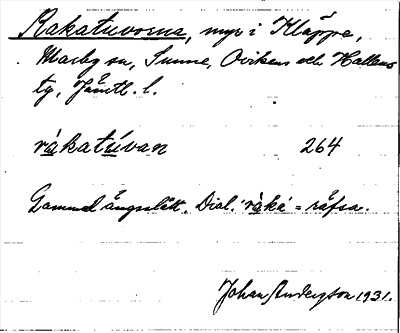 Rakatuvorna, myr i Kläppe,
Marby sn, Sunne, Oviken och Hallens
tg, Jämtl. l.
råkatúvan 264
Gammal ängsslått. Dial. 'råkå' = räfsa.
Johan Anderson 1931.